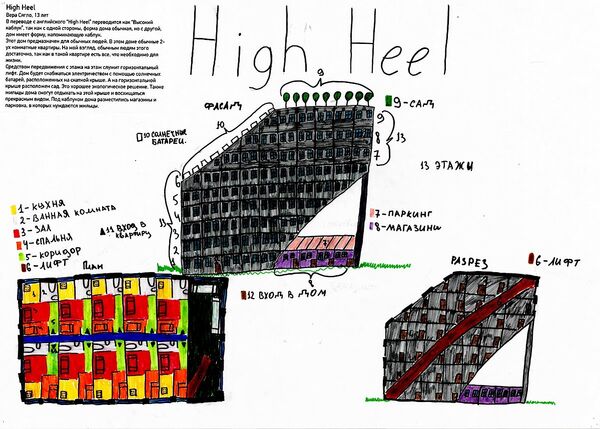 High Heel
Вера Сягло, 13 лет
В переводе с английского "High Heel" переводится как "Высокий
каблук", так как с одной стороны, форма дома обычная, но с другой,
дом имеет форму, напоминающую каблук.
Этот дом предназначен для обычных людей. В этом доме обычные 2-
ух комнатные квартиры. На мой взгляд, обычным людям этого
достаточно, так как в такой квартире есть все, что необходимо для
жизни.
Средством передвижения с этажа на этаж служит горизонтальный
лифт. Дом будет снабжаться электричеством с помощью солнечных
батарей, расположенных на скатной крыше. А на горизонтальной
крыше расположен сад. Это хорошее экологическое решение. Также
жильцы дома смогут отдыхать на этой крыше и восхищаться
прекрасным видом. Под каблуком дома разместились магазины и
парковка, в которых нуждаются жильцы.
High Heel
9
ФАСАД
9-САД
10
10 СОЛНЕЧНЫЕ
БАТАРЕИ.
9
8
7
13
13 ЭТАЖЫ
6
5
4
3
2
13
1-КУХНЯ
2-ВАННАЯ КОМНАТА
3-ЗАЛ
4-СПАЛЬНЯ
5-КОРИДОР
6-ЛИФТ
11 ВХОД В
КВАРТИРУ
7-ПАРКИНГ
8-МАГАЗИНЫ
7
8
12 ВХОД В ДОМ
ПЛАН
РАЗРЕЗ
6-ЛИФТ